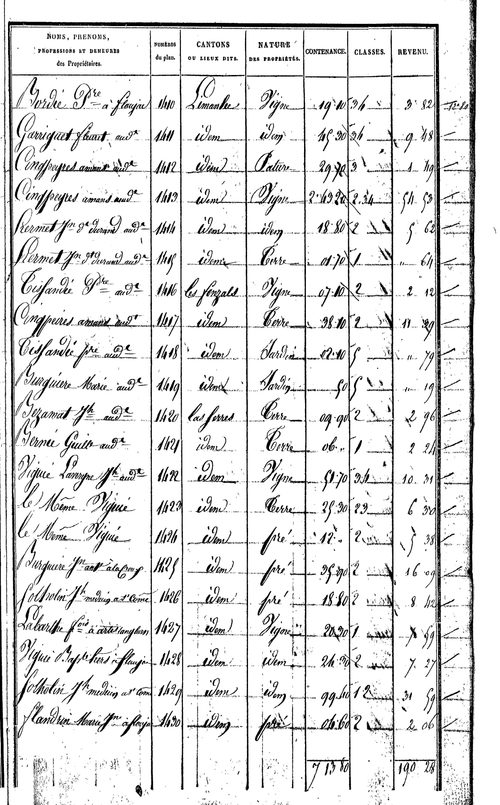 NOMS, PRENOMS, PROFESSIONS ET DEMEURES des Propriétaires. NUMÉROS du plan. CANTONS OU LIEUX DITS. NATURE DES PROPRIÉTÉS. CONTENANCE. CLASSES. REVENU.
Bordié Pre à flaujac 1410 Vigne 19 10 3 4 3 82
Garriguet 1411 idem idem 45 30 3 4 9 48
Cinqpeyres amans aud 1412 idem Pature 29 70 3 1 49
Cinqpeyres amans aud 1413 idem Vigne 2 43 20 2 3 4 54 53
Kermet Jn 1414 idem idem 18 80 2 5 62
Kermet Jn 1415 idem Terre 01 70 1 " 64
Tissandié Pre aud 1416 les fonzals Vigne 07 10 2 2 12
Cinqpeires amans aud 1417 idem Terre 38 10 2 11 39
Tissandié pre aud 1418 idem Jardin 02 10 5 " 79
Burguiere Marie aud 1419 idem Jardin 50 5 " 19
Bezamat Jh aud 1420 las serres Terre 09 90 2 2 96
aud 1421 idem Terre 06 " 1 2 24
Viguié Lavergne Jh aud 1422 idem Vigne 51 70 3 4 10 31
le Même Viguié 1423 idem Terre 25 30 2 3 6 30
le Même Viguié 1424 idem pré 12 " 2 5 38
Burguiere 1425 idem pré 35 90 2 16 09
Solholin Jh medecin a St Come 1426 idem pré 18 80 2 8 42
Labarthe fois 1427 idem Vigne 20 30 1 7 59
Viguié Bapte à flaujac 1428 idem idem 24 30 2 7 27
Solholin Jh medecin a St Come 1429 idem idem 99 40 1 2 31 59
flandrin Marie Jne a flaujac 1430 idem pré 04 60 2 2 06
7 13 80 190 28